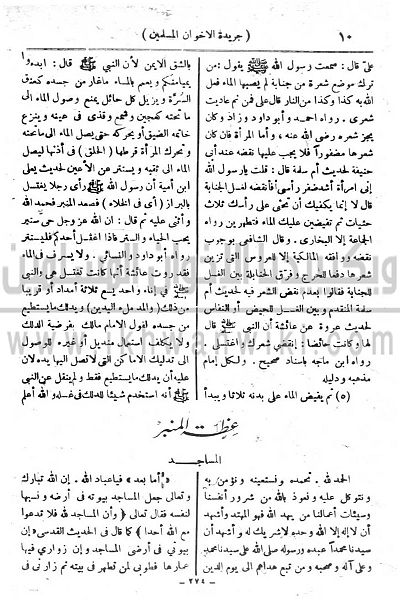 ١٠
( جريدة الاخوان المسلمين )
علىّ قال: سمعت رسول الله ﷺ يقول: من
ترك موضع شعرة من جنابة لم يصبها الماء فعل
الله به كذا وكذا من النار قال على فمن ثم عاديت
شعرى . رواه احمد وأبو داود وزاد وكان
يجز شعره رضى الله عنه ، وأما المرأة فان كان
شعرها مضفوراً فلا يجب عليها نقضه عند أبى
حنيفة لحديث أم سلمة قالت: قلت يا رسول الله
إنى امرأة أشد ضفر رأسى أفأنقضه لغسل الجنابة
قال لا إنما يكفيك أن تحثى على رأسك ثلاث
حثيات ثم تفيضين عليك الماء فتطهرين رواه
الجماعة إلا البخارى . وقال الشافعى بوجوب
نقضه ووافقه المالكية إلا للعروس التى تزين
شعرها دفعا للحرج وفرق الحنابلة بين الغسل
للجنابة فقالوا بعدم نقض الشعر فيه لحديث أم
سلمة المتقدم وبين الغسل للحيض أو النفاس
لحديث عروة عن عائشة أن النبى ﷺ قال
لها وكانت حائضا: إنقضى شعرك واغتسلى
رواه ابن ماجه باسناد صحيح . ولكل إمام
مذهبه ودليله
(٥) ثم يفيض الماء على بدنه ثلاثا ويبدأ
بالشق الايمن لأن النبى ﷺ قال : ابدءوا
بميامنكم ويعم بالماء ماغار من جسده كعمق
السُّرة ويزيل كل حائل يمنع وصول الماء إلى
ما تحته كعجين وشمع وقذى فى عينه وينزع
خاتمه الضيق أو يحركه حتى يصل الماء إلى ما تحته
وتحرك المرأة قرطها ( الحلق ) فى أذنها ليصل
الماء الى ثقبه ويستتر عن الأعين لحديث يعلى
ابن أمية أن رسول الله ﷺ رأى رجلا يغتسل
بالبراز ( أى فى الخلاء ) فصعد المنبر فحمد الله
وأثنى عليه ثم قال : ان الله عز وجل حيى ستير
يحب الحياء والستر فاذا اغتسل أحدكم فليستتر
رواه أبو داود والنسائى . ولا يسرف فى الماء
فقد روت عائشة أنها كانت تغتسل هى والنبى
ﷺ فى إناء واحد يسع ثلاثة أمداد أو قريبا
من ذلك ( والمد ملء اليدين ) ويدلك ما يستطيع
من جسده لقول الامام مالك بفرضية الدلك
ولا يكلف استعمال منديل أو غيره للوصول
الى تدليك الاما كن التى لاتصل اليها يده لان
عليه أن يدلك ما يستطيع فقط ولم ينقل عن النبى
ﷺ أنه استخدم شيئا للدلك فى غسله والله أعلم
عظة المنبر
المساجد
الحمد لله . نحمده ونستعينه ونؤمن به
ونتوكل عليه ونعوذ بالله من شرور أنفسنا
وسيئات أعمالنا من يهد الله فهو المهتد وأشهد
أن لا إله إلا الله وحده لا شريك له وأشهد أن
سيدنا محمداً عبده ورسوله صلى الله على سيدنا محمد
وعلى آله وصحبه ومن تبع هداهم الى يوم الدين
«أما بعد» فيا عباد الله . إن الله تبارك
وتعالى جعل المساجد بيوته فى أرضه ونسبها
لنفسه فقال تعالى ( وأن المساجد لله فلا تدعوا
مع الله أحدا ) كما قال فى الحديث القدسى «إن
بيوتى فى أرضى المساجد وإن زوارى فيها
عمارها فطوبى لمن تطهر فى بيته ثم زارنى فى
- ٢٧٤ -